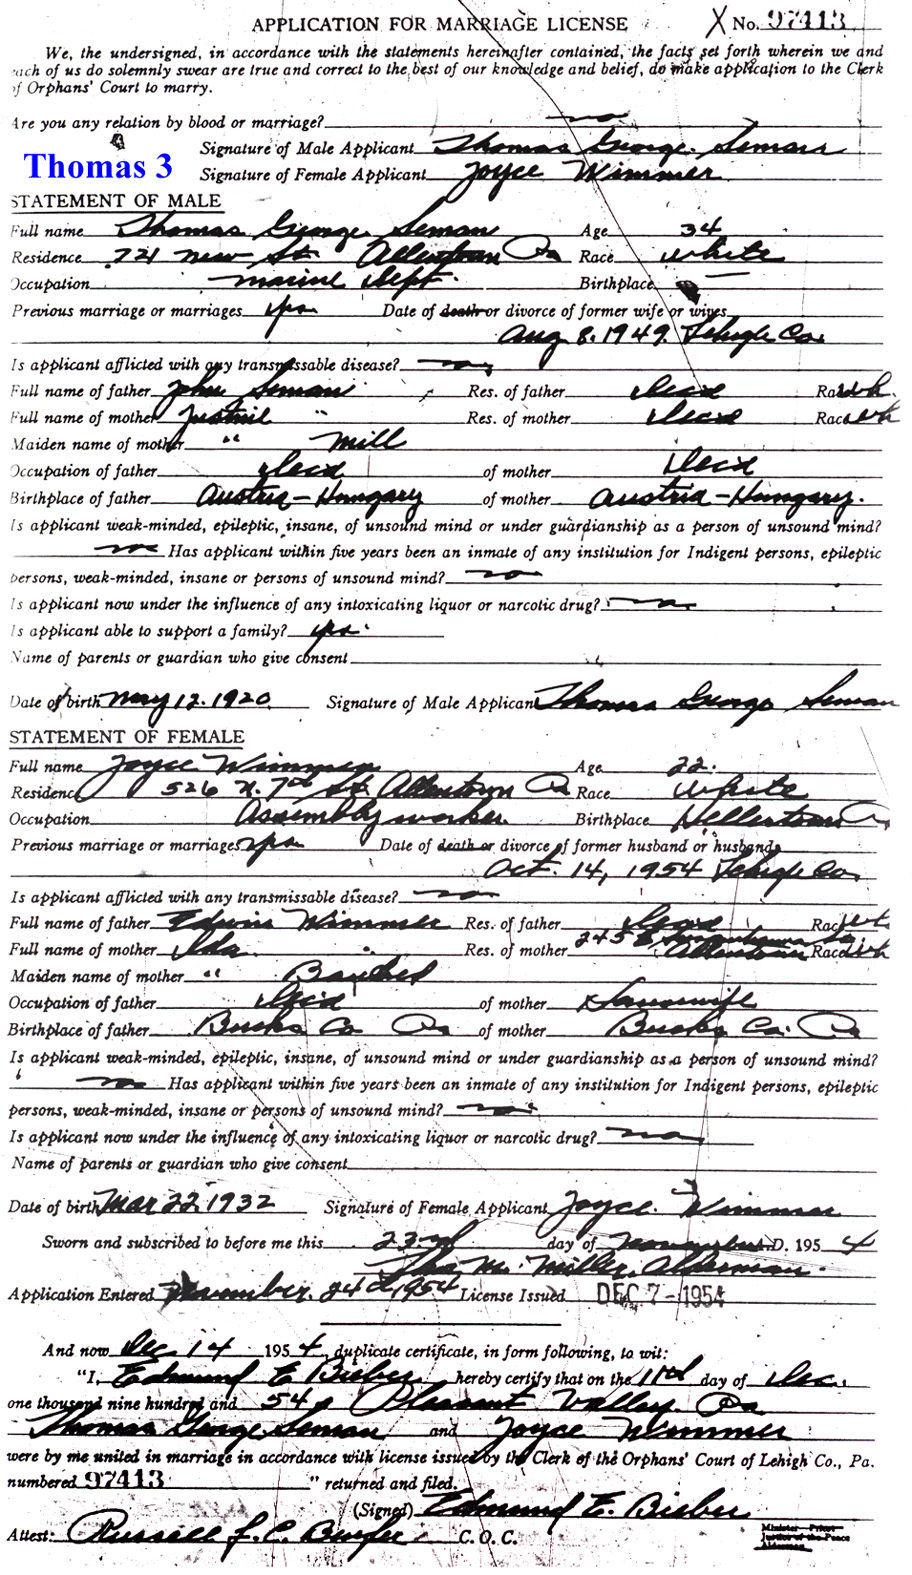 APPLICATION FOR MARRIAGE LICENSE X No. 97413
We, the undersigned, in accordance with the statements hereinafter contained, the facts set forth wherein we and
each of us do solemnly swear are true and correct to the best of our knowledge and belief, do make application to the Clerk
of Orphans' Court to marry.
Are you any relation by blood or marriage? no
Signature of Male Applicant Thomas George Seman
Thomas 3
Signature of Female Applicant Joyce Wimmer
STATEMENT OF MALE
Full name Thomas George Seman Age 34
Residence 721 New St. Allentown Pa Race white
Occupation marine Dept. Birthplace
Previous marriage or marriages yes Date of death or divorce of former wife or wives
Aug 8. 1949. Lehigh Co.
Is applicant afflicted with any transmissable disease? no
Full name of father John Seman Res. of father Dec'd Race wh.
Full name of mother " Res. of mother Dec'd Race wh
Maiden name of mother " Mill
Occupation of father Dec'd of mother Dec'd
Birthplace of father Austria-Hungary of mother Austria-Hungary.
Is applicant weak-minded, epileptic, insane, of unsound mind or under guardianship as a person of unsound mind?
no Has applicant within five years been an inmate of any institution for Indigent persons, epileptic
persons, weak-minded, insane or persons of unsound mind? no
Is applicant now under the influence of any intoxicating liquor or narcotic drug? no
Is applicant able to support a family? yes
Name of parents or guardian who give consent
Date of birth May 12. 1920 Signature of Male Applicant Thomas George Seman
STATEMENT OF FEMALE
Full name Joyce Wimmer Age 22.
Residence 526 N. 7th St. Allentown Pa Race white
Occupation Assembly worker Birthplace Hellertown Pa
Previous marriage or marriages yes Date of death or divorce of former husband or husbands
Oct. 14, 1954 Lehigh Co.
Is applicant afflicted with any transmissable disease? no
Full name of father Edwin Wimmer Res. of father Dec'd Race wh.
Full name of mother Ida Res. of mother Allentown Race wh
Maiden name of mother "
Occupation of father Dec'd of mother Housewife
Birthplace of father Bucks Co Pa of mother Bucks Co. Pa
Is applicant weak-minded, epileptic, insane, of unsound mind or under guardianship as a person of unsound mind?
no Has applicant within five years been an inmate of any institution for Indigent persons, epileptic
persons, weak-minded, insane or persons of unsound mind? no
Is applicant now under the influence of any intoxicating liquor or narcotic drug? no
Name of parents or guardian who give consent
Date of birth Mar 22 1932 Signature of Female Applicant Joyce Wimmer
Sworn and subscribed to before me this 23rd day of November A.D. 1954
M. Miller, Alderman.
Application Entered November 24th 1954 License Issued DEC 7-1954
And now Dec 14 1954, duplicate certificate, in form following, to wit:
"I, Edmund E Bieber hereby certify that on the 11th day of Dec.
one thousand nine hundred and 54 Pleasant Valley Pa
Thomas George Seman and Joyce Wimmer
were by me united in marriage in accordance with license issued by the Clerk of the Orphans' Court of Lehigh Co., Pa.
numbered 97413 " returned and filed.
(Signed) Edmund E. Bieber
Attest: Russell C. O. C. Minister - Priest
Justice of the Peace
Alderman